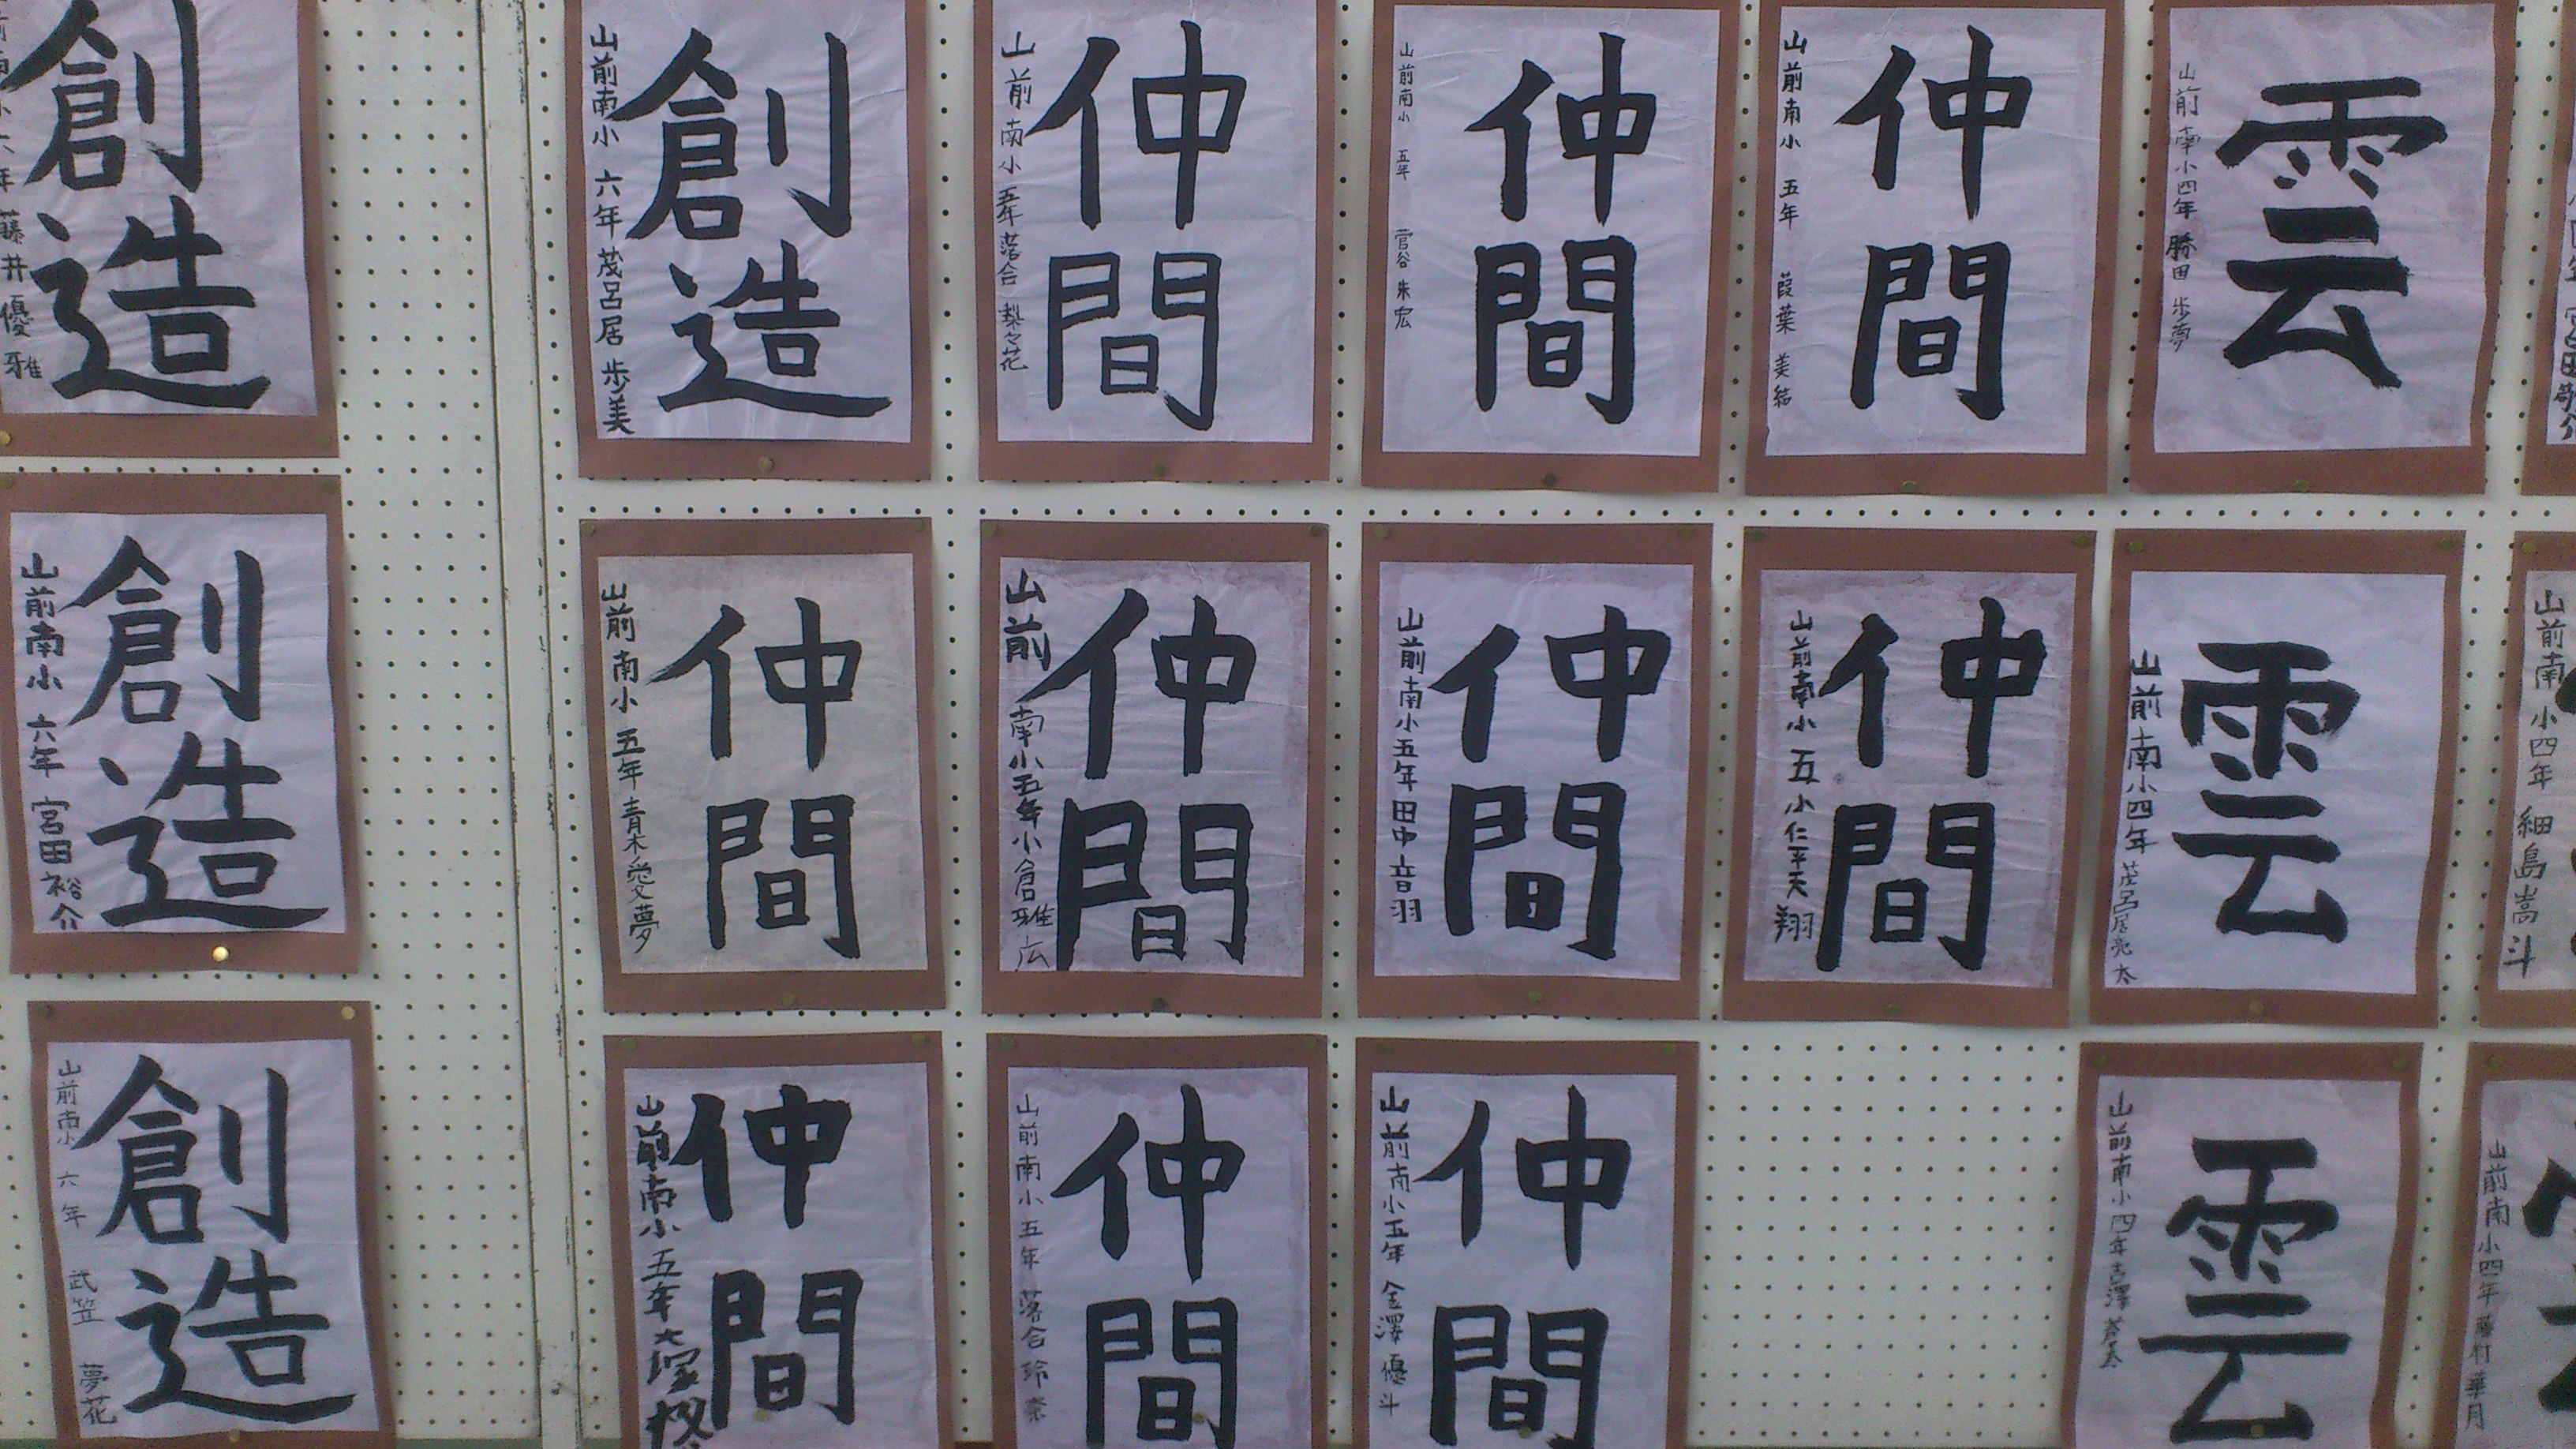 創造
藤井優雅
創造
山前南小 六年 茂呂居 歩美
仲間
山前南小 五年 落合 梨々花
仲間
山前南小 五年 菅谷 朱宏
仲間
山前南小 五年 葭葉 美結
雲
山前南小四年 勝田 歩夢
創造
山前南小 六年 宮田裕介
仲間
山前南小 五年 青木愛夢
仲間
山前南小五年小倉雅広
仲間
山前南小五年田中音羽
仲間
山前南小 五 小仁平天翔
雲
山前南小四年 茂呂居亮太
山前南小四年 細島嵩斗
創造
山前南小 六年 武笠 夢花
仲間
山前南小 五年 大塚
仲間
山前南小 五年 落合 玲奈
仲間
山前南小五年 金澤 優斗
雲
山前南小四年吉澤
山前南小四年 華月